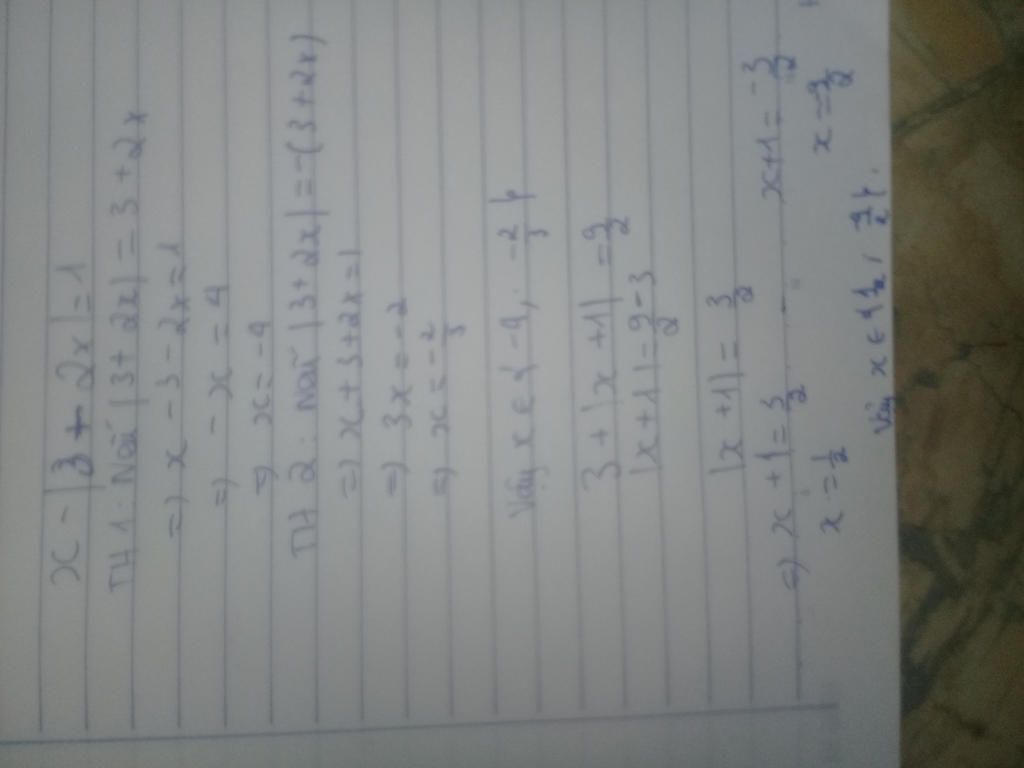 x - |3 + 2x| = 1
TH1: Nếu |3 + 2x| = 3 + 2x
=) x - 3 - 2x = 1
=) - x = 4
=) x = -4
TH 2: Nếu |3 + 2x| = -(3 + 2x)
=) x + 3 + 2x = 1
=) 3x = -2
=) x = -2/3
Vậy x ∈ { -4, -2/3 }
3 + |x + 1| = 9/2
|x + 1| = 9/2 - 3
|x + 1| = 3/2
=) x + 1 = 3/2 x + 1 = -3/2
x = 1/2
Vậy x ∈ { 1/2,